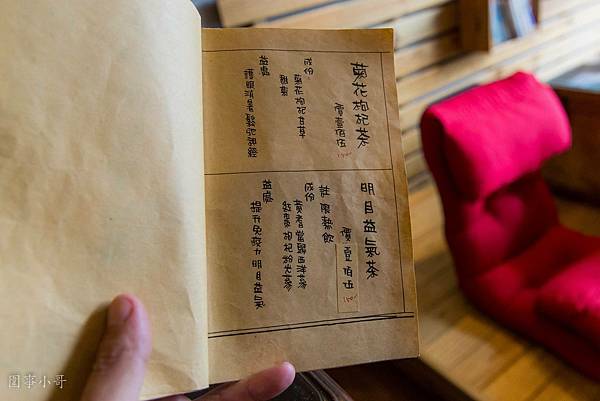 菊花枸杞茶
價壹佰伍
150
成份
菊花枸杞甘草
甜菊
益處
護眼消暑鬆弛神經
明目益氣茶
價壹佰伍
150
註限熱飲
成份
黃耆當歸西洋蔘
紅棗枸杞
益處
提升免疫力明目益氣
圍事小哥